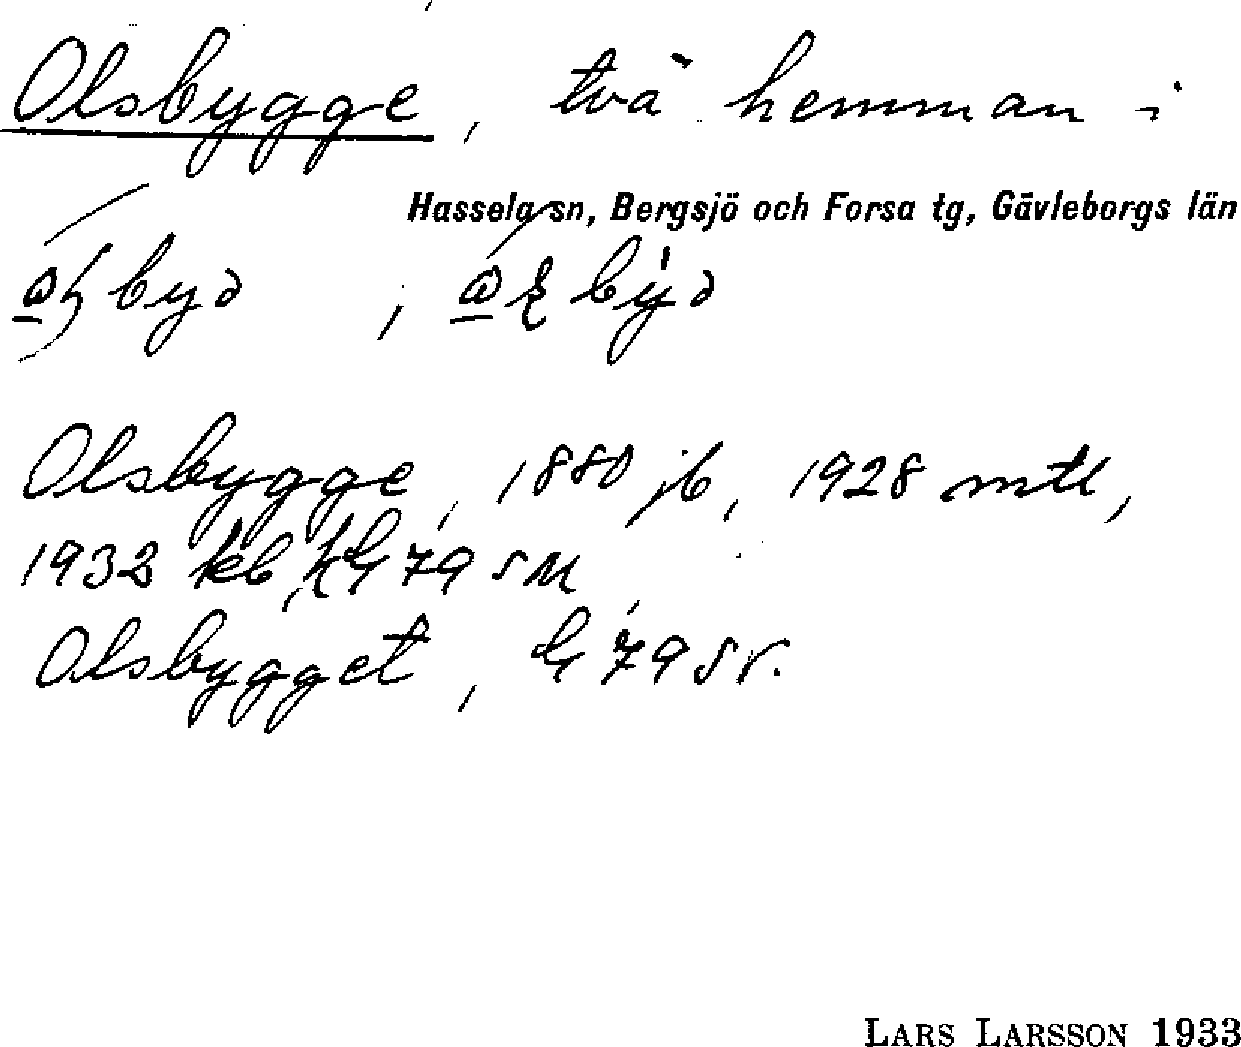 Olsbygge, två hemman i
Hassela sn, Bergsjö och Forsa tg, Gävleborgs län
Olsbygge, 1880 jb, 1928 mtl,
1932 kb, G 79 SM
Olsbygget, G 79 SV.
LARS LARSSON 1933